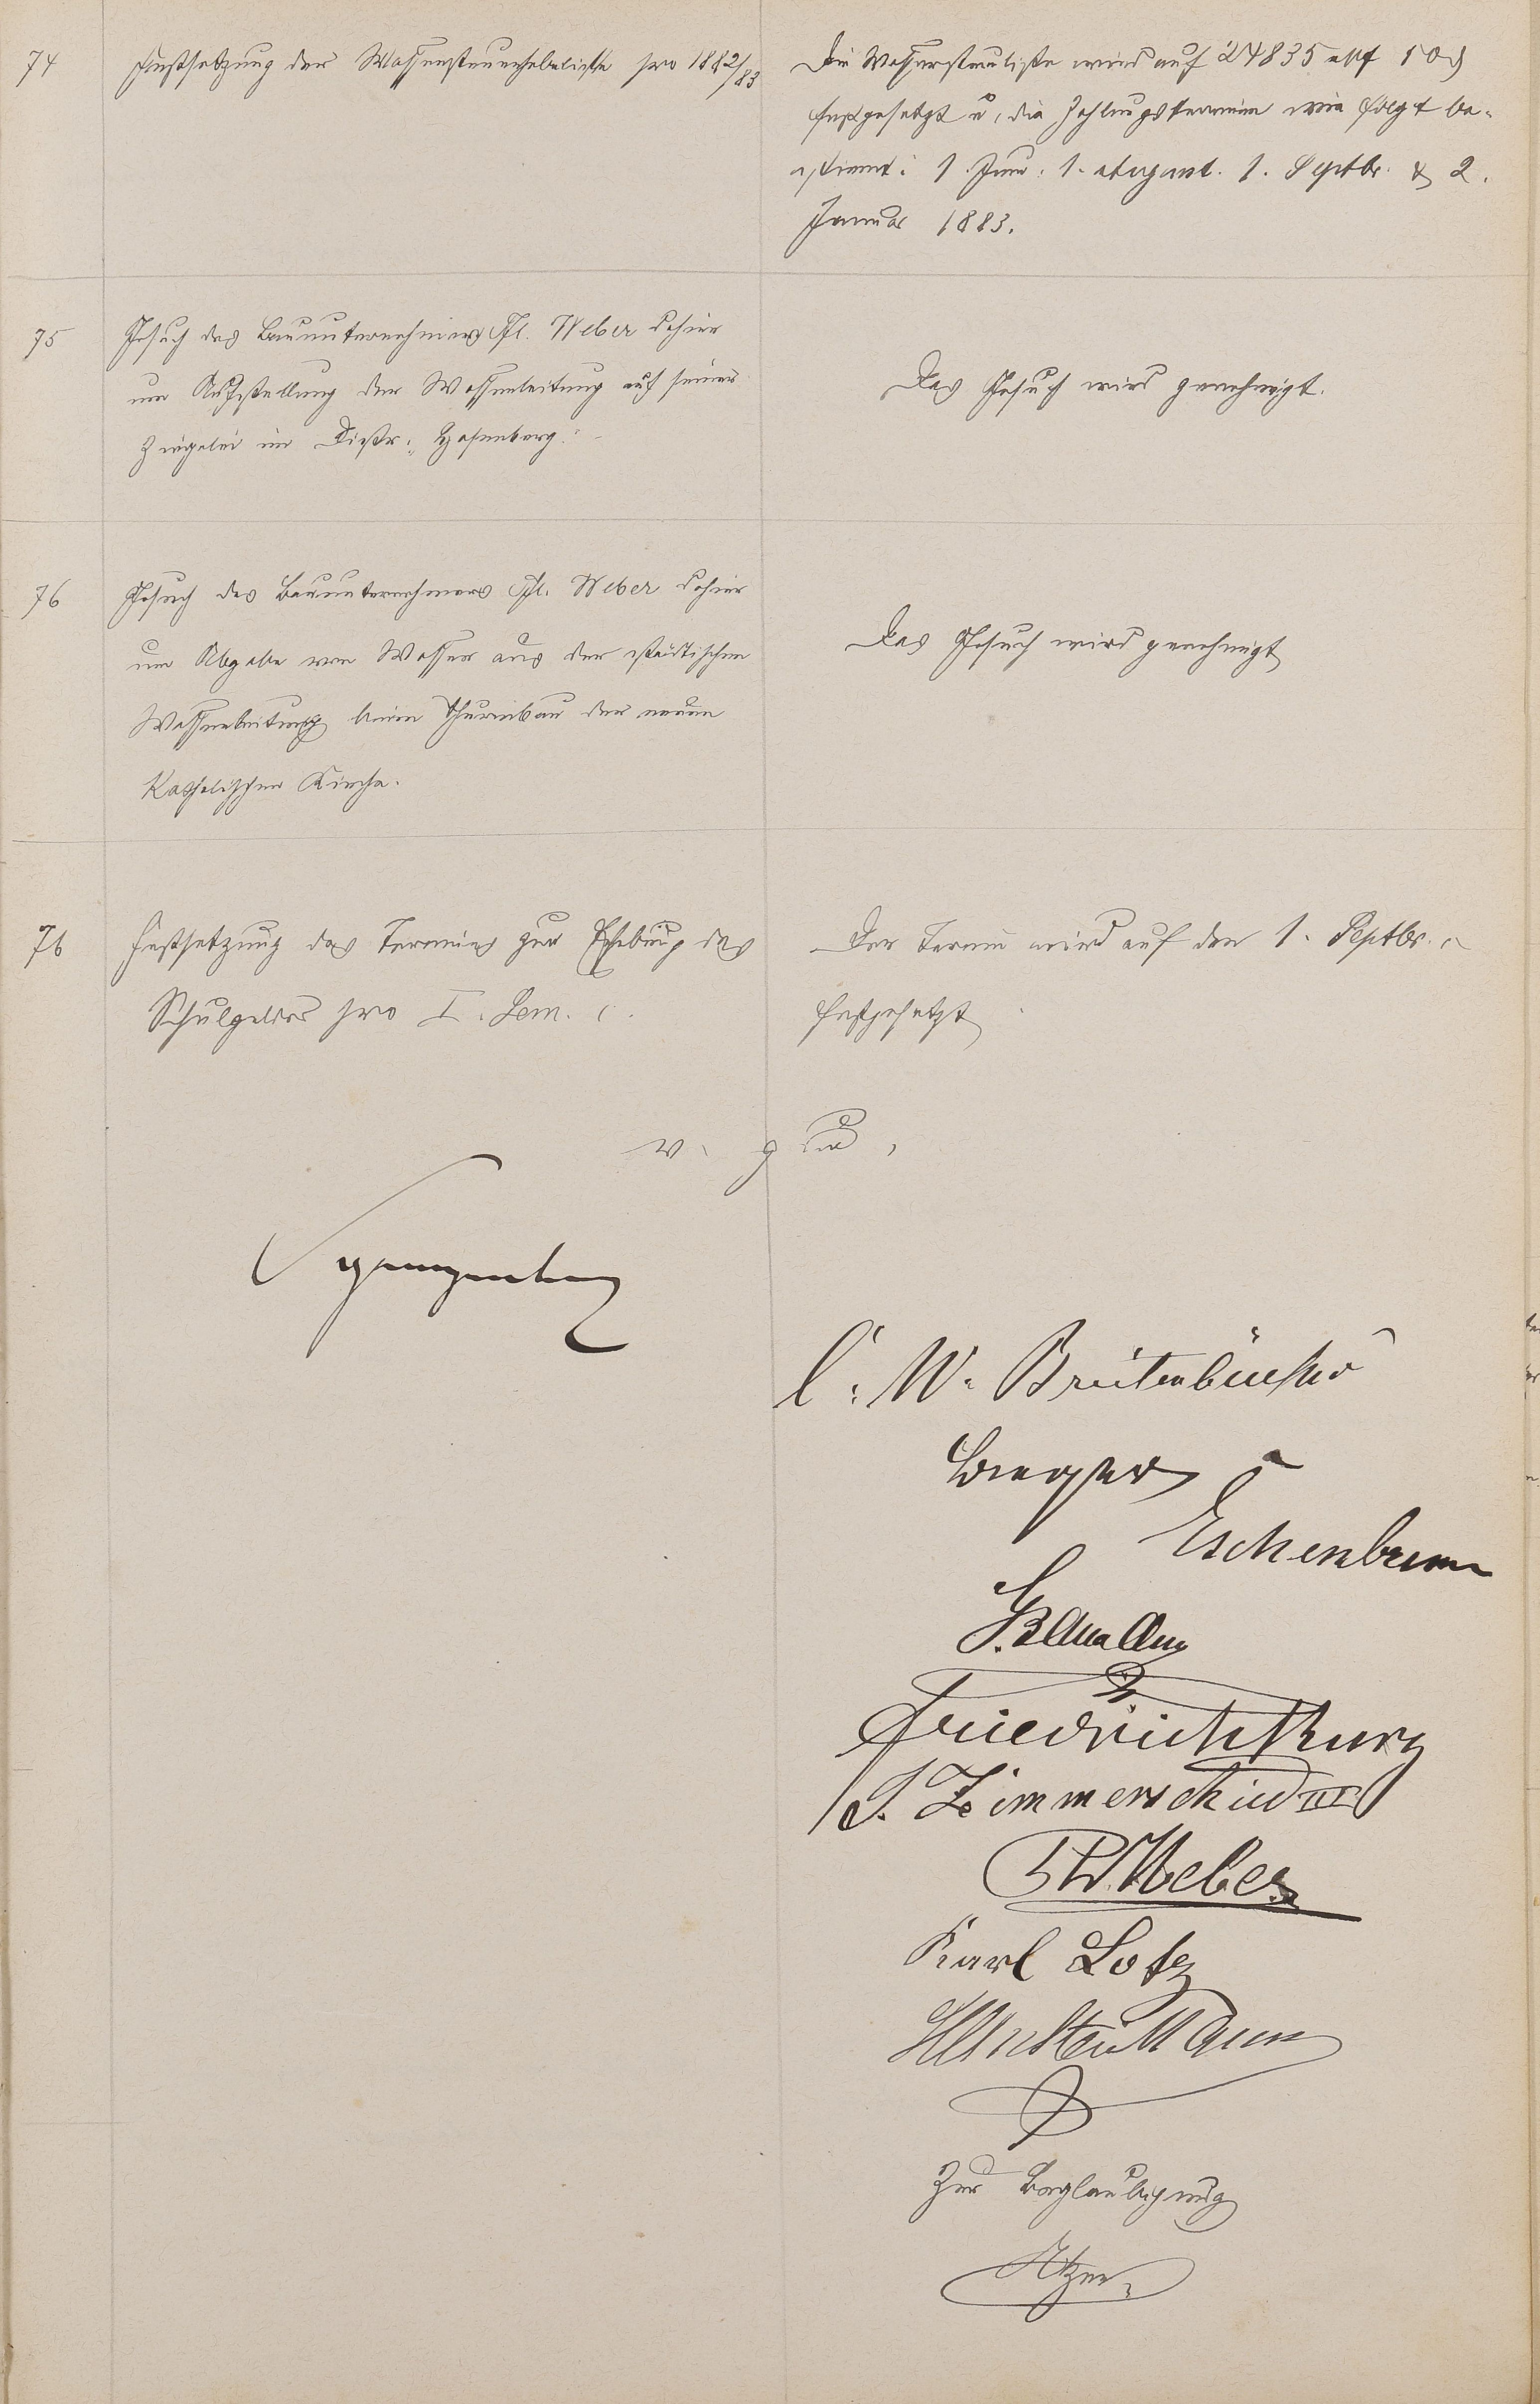 74
Festsetzung der Wassersteuerhebeliste pro 1882/83
Die Wassersteuerliste wird auf 24835 M 50 ₰
festgesetzt u. die Zahlungstermine wie folgt be-
stimmt: 1. Juni. 1. August. 1. Septbr. & 2.
Januar 1883.
75
Gesuch des Bauunternehmers Ph. Weber dahier
um Aufstellung der Wasserleitung auf seiner
Ziegelei im Distr: Hasenberg.
Das Gesuch wird genehmigt.
76
Gesuch des Bauunternehmers Ph. Weber dahier
um Abgabe von Wasser aus der städtischen
Wasserleitung beim Thurmbau der neuen
Katholischen Kirche.
Das Gesuch wird genehmigt
76
Festsetzung des Termins zur Erhebung des
Schulgeldes pro I. Sem. c.
Der Termin wird auf den 1. Septbr. c
festgesetzt
v. g. u.
Spangenberg
C. W. Breitenbücher
Berger
Eschenbrenn
Friedrich Kurz
J. Zimmerschied III
Ph. Weber
Karl Lotz
Zur Beglaubigung